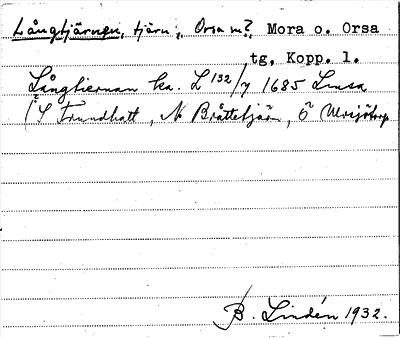 Långtjärnen, tjärn, Orsa m?, Mora o. Orsa
tg, Kopp. l.
Långtiernan ka. L 132/7 1685 Lmsa
(S Trundhatt, N Bråttetjärn, Ö
B. Lindén 1932.